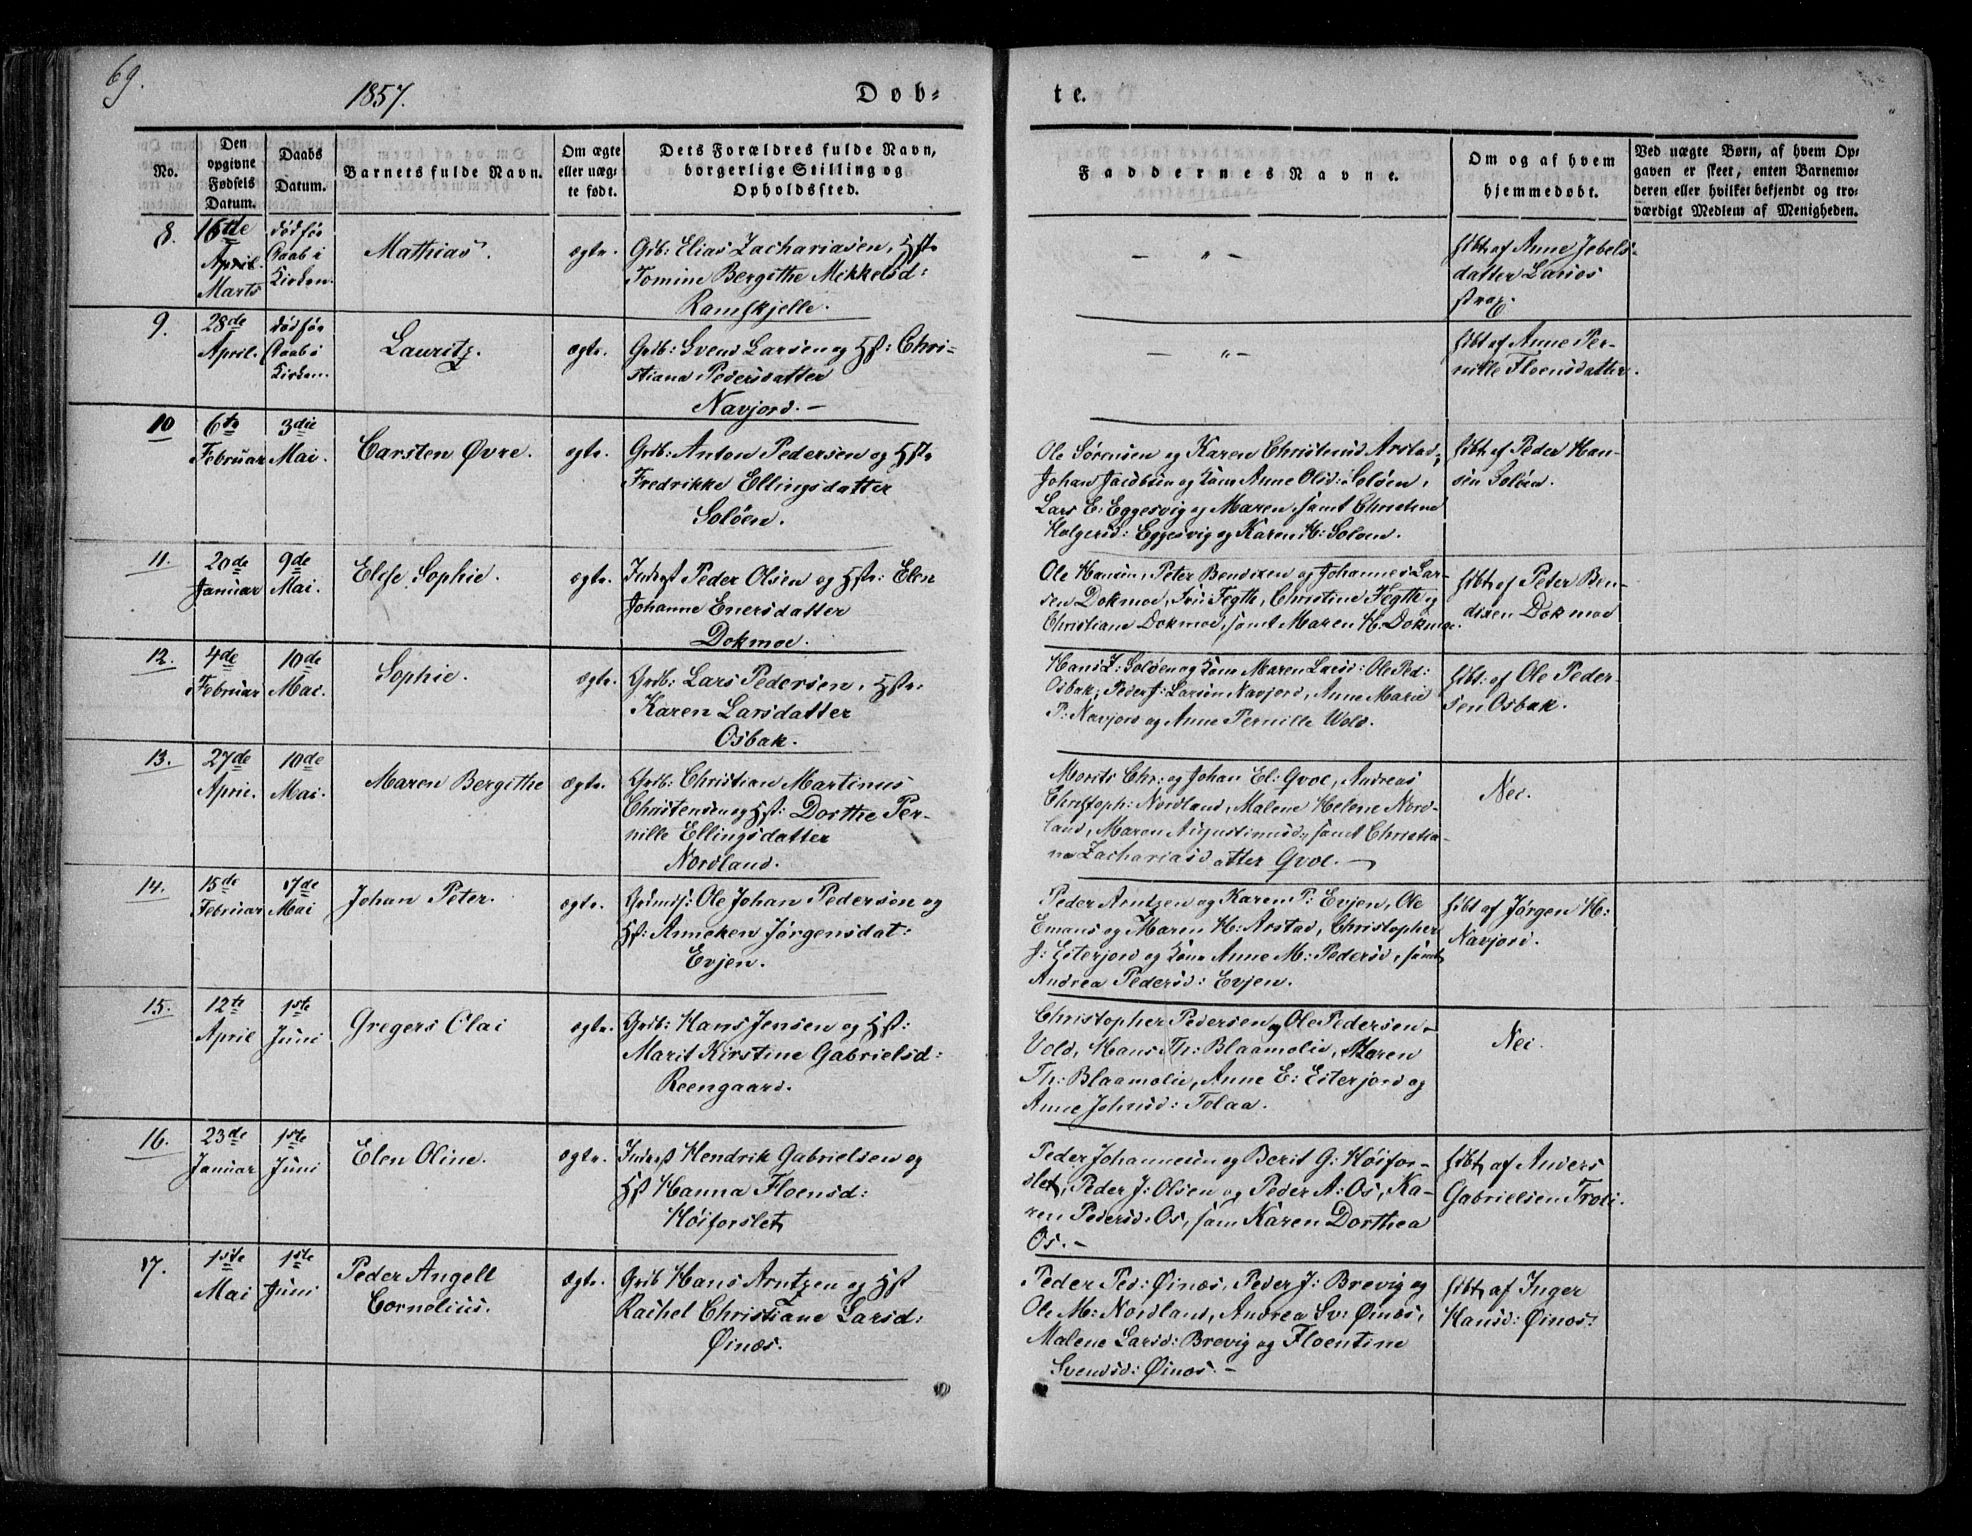 69.
1857.
Døb-
te.
No.
Den opgivne Fødsels Datum.
Daabs Datum.
Barnets fulde Navn.
Om ægte eller uægte født.
Dets Forældres fulde Navn, borgerlige Stilling og Opholdssted.
Faddernes Navne.
Om og af hvem hjemmedøbt.
Ved uægte Børn, af hvem Opgaven er skeet, enten Barnemoderen eller hvilket bekjendt og troværdigt Medlem af Menigheden.
8.
16de
April.
Marts
død før
Daab i
Kirken.
Mathias.
ægte.
Grdb: Elias Zachariasen, Hst.
Tomine Bergithe Mikkelsd:
Ramskjelle.
— " —
hdbt. af Anne Jebels-
datter Larsos
strax.
9.
28de
April.
død før
Daab i
Kirken.
Lauritz.
ægte.
Grdb: Svend Larsen og Hst: Chri-
stiana Pedersdatter
Navjord. —
— " —
hdbt af Anne Per-
nille Floensdatter.
10
6te
Februar
3die
Mai.
Carsten Øvre.
ægte.
Grdb: Anton Pedersen og Hst.
Fredrikke Ellingsdatter
Soløen.
Ole Sørensen og Karen Christensd Arstad,
Johan Jacobsen og Kone Anne Olsd: Soløen,
Lars E: Eggesvig og Maren, samt Christine
Holgersd: Eggesvig og Karen H: Soløen.
hdbt. af Peder Han-
sen Soløen.
11.
20de
Januar
9de
Mai.
Elise Sophie.
ægte.
Inderst Peder Olsen og Hst: Elen
Johanne Enersdatter
Dokmoe.
Ole Hansen, Peter Bendixen og Johannes Lar-
sen Dokmoe, Fegth, Christine Fegth og
Christiane Dokmoe, samt Maren H. Dokmoe.
hdbt. af Peter Ben-
dixen Dokmoe
12.
4de
Februar
10de
Mai.
Sophie.
ægte.
Grdb: Lars Pedersen, Hst.
Karen Larsdatter
Osbak.
Hans J: Soløen og Kone Maren Larsd: Ole Ped:
Osbak, Peder J: Larsen Navjord, Anne Marie
P: Navjord og Anne Pernille Vold.
hdbt: af Ole Peder-
sen Osbak.
13.
27de
April.
10de
Mai.
Maren Bergithe
ægte.
Grdb: Christian Martinus
Christensen og Hst: Dorthe Per-
nille Ellingsdatter
Nordland.
Morits Chr: og Johan El: Gvoe, Andreas
Christoph: Nordland, Malene Helene Nord-
land, Maren Augustinusd, samt Christia-
na Zachariasdatter Gvoe. —
Nei.
14.
15de
Februar
17de
Mai
Johan Peter.
ægte.
Ole Johan Pedersen og
Hst: Anneken Jørgensdat:
Evjen.
Peder Arntzen og Karen P: Evjen, Ole
Emans og Maren H: Arstad, Christopher
J: Eiterjord og Kone Anne M: Pedersd, samt
Andrea Pedersd: Evjen.
hdbt af Jørgen H:
Navjord.
15.
12te
April
1ste
Juni
Gregers Olai
ægte.
Grdb: Hans Jensen og Hst:
Marit Kirstine Gabrielsd:
Reengaard.
Christopher Pedersen, Ole Pedersen
Vold, Hans Th: Blaamolie, Maren
Th: Blaamolie, Anne E: Eiterjord og
Anne Johnsd: Tolaa.
Nei.
16.
23de
Januar
1ste
Juni
Elen Oline.
ægte.
Inderst Hendrik Gabrielsen og
Hst Hanna Floensd:
Høiforslet
Peder Johannesen og Berit G: Høifor-
slet, Peder J: Olsen og Peder A: Os, Ka-
ren Pedersd. Os, sam Karen Dorthea
Os. —
hdbt af Anders
Gabrielsen Troli.
17.
1ste
Mai
1ste
Juni
Peder Angell
Cornelius.
ægte.
Grdb Hans Arntzen og Hst
Rachel Christiane Larsd:
Øinæs.
Peder Ped: Øinæs, Peder J: Brevig og
Ole M: Nordland, Andrea Sv: Øinæs,
Malene Larsd: Brevig og Floentine
Svendsd: Øinæs. —
hdbt af Inger
Hansd: Øinæs.